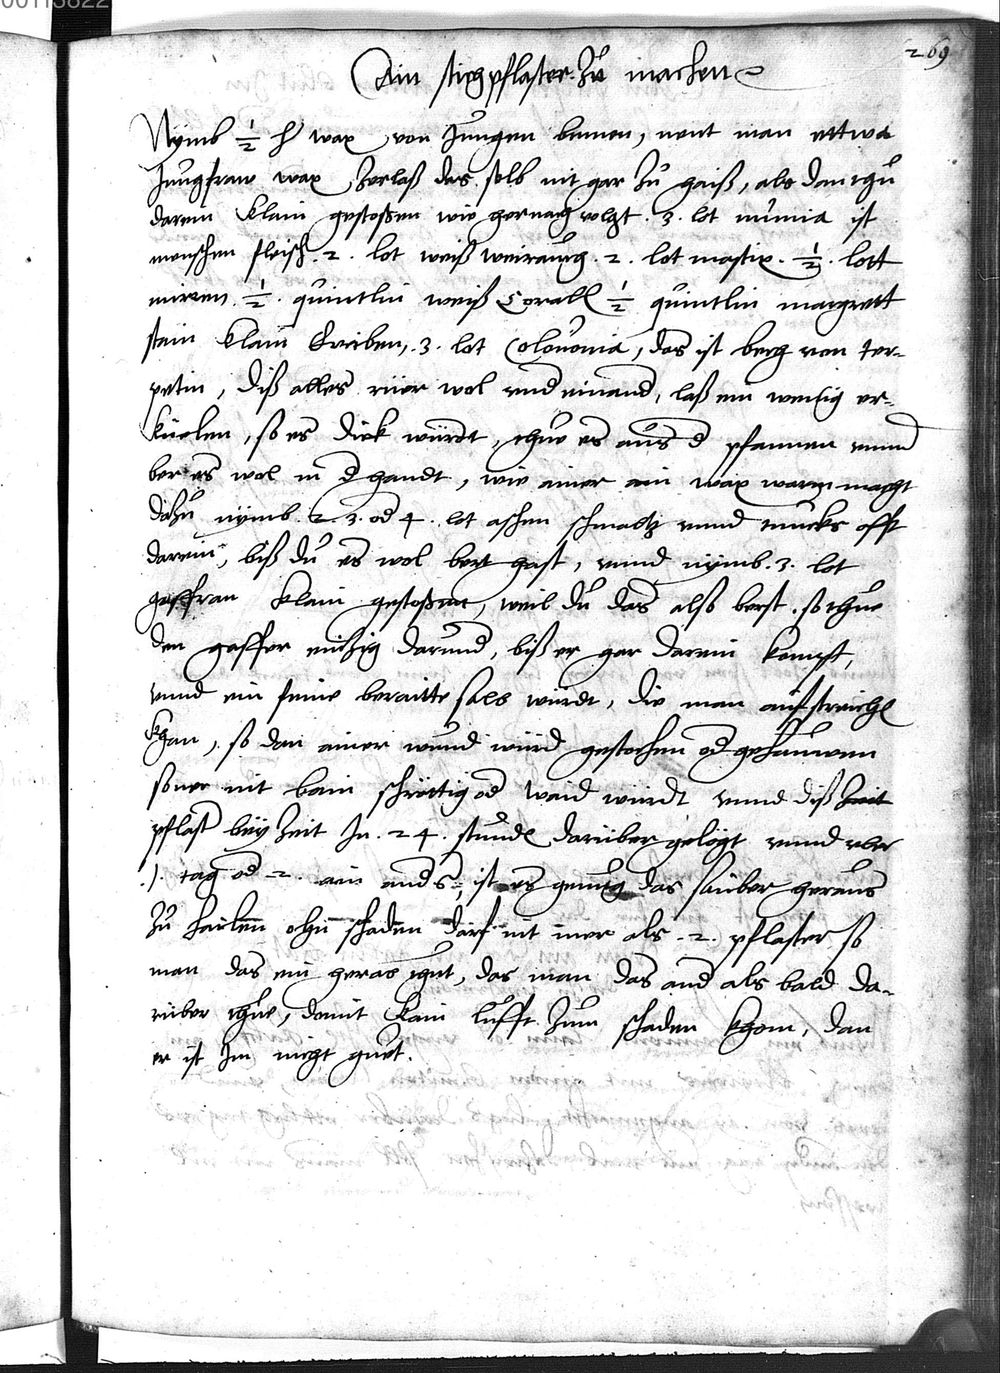 269
Ain stichpflaster zu machen
Nÿmb ½ ℔ wax von Jungen binnen, nent man ettwa
Jungfraw wax zerlaß das selb nit gar zu haiß, als dan thu
darein klain gestoßen wie hernach volgt .3. lot mumia ist
menschen fleisch .2. lot weiß weirauch .2. lot mastix .½. lott
mirren .½. quintlin weiß Corall ½ quintlin magnett
stain klain Griben, .3. lot Colovonia, das ist berg von ter-
petin, diß alles rüer wol vnd einand, laß ein wenig er-
küelen, so es dick würdt, thue es aus d pfannen vnnd
ber es wol in d handt, wie ainer ain wax warm macht
dazu nÿmb .2.3. od 4. lot aschen schmaltz vnnd truckhs offt
darein, biß du es wol bert hast, vnnd nÿmb .3. lot
gaffran klain gestoßen, weil du das also berst, so thue
den gaffer einzig darund, biß er gar darein kompt,
vnnd ein feine beraitte salb würdt, die man aufstreichē
khan, so dan ainer wund würd gestochen od gehauwen
soner nit bain schröttig od waid würdt vnnd diß
pflast beÿ Zeit In .24. stundē darüber gelögt vnnd vber
.1. tag od .2. ain anders, ist es genug das sauber heraus
zu hailen ohn schaden darf nit mer als .2. pflaster so
man das ein herab thut, das man das and als bald da-
rüber thue, damit kain lufft zum schaden khom, dan
er ist Im nicht guet.